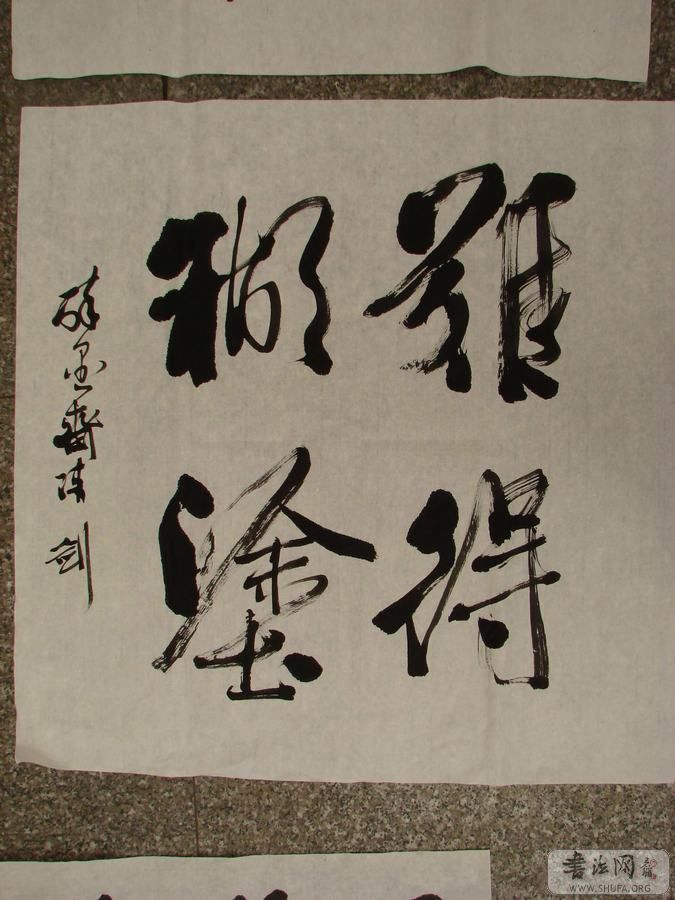 難得
糊塗
醉墨齋陈剑
書法网
WWW.SHUFA.ORG